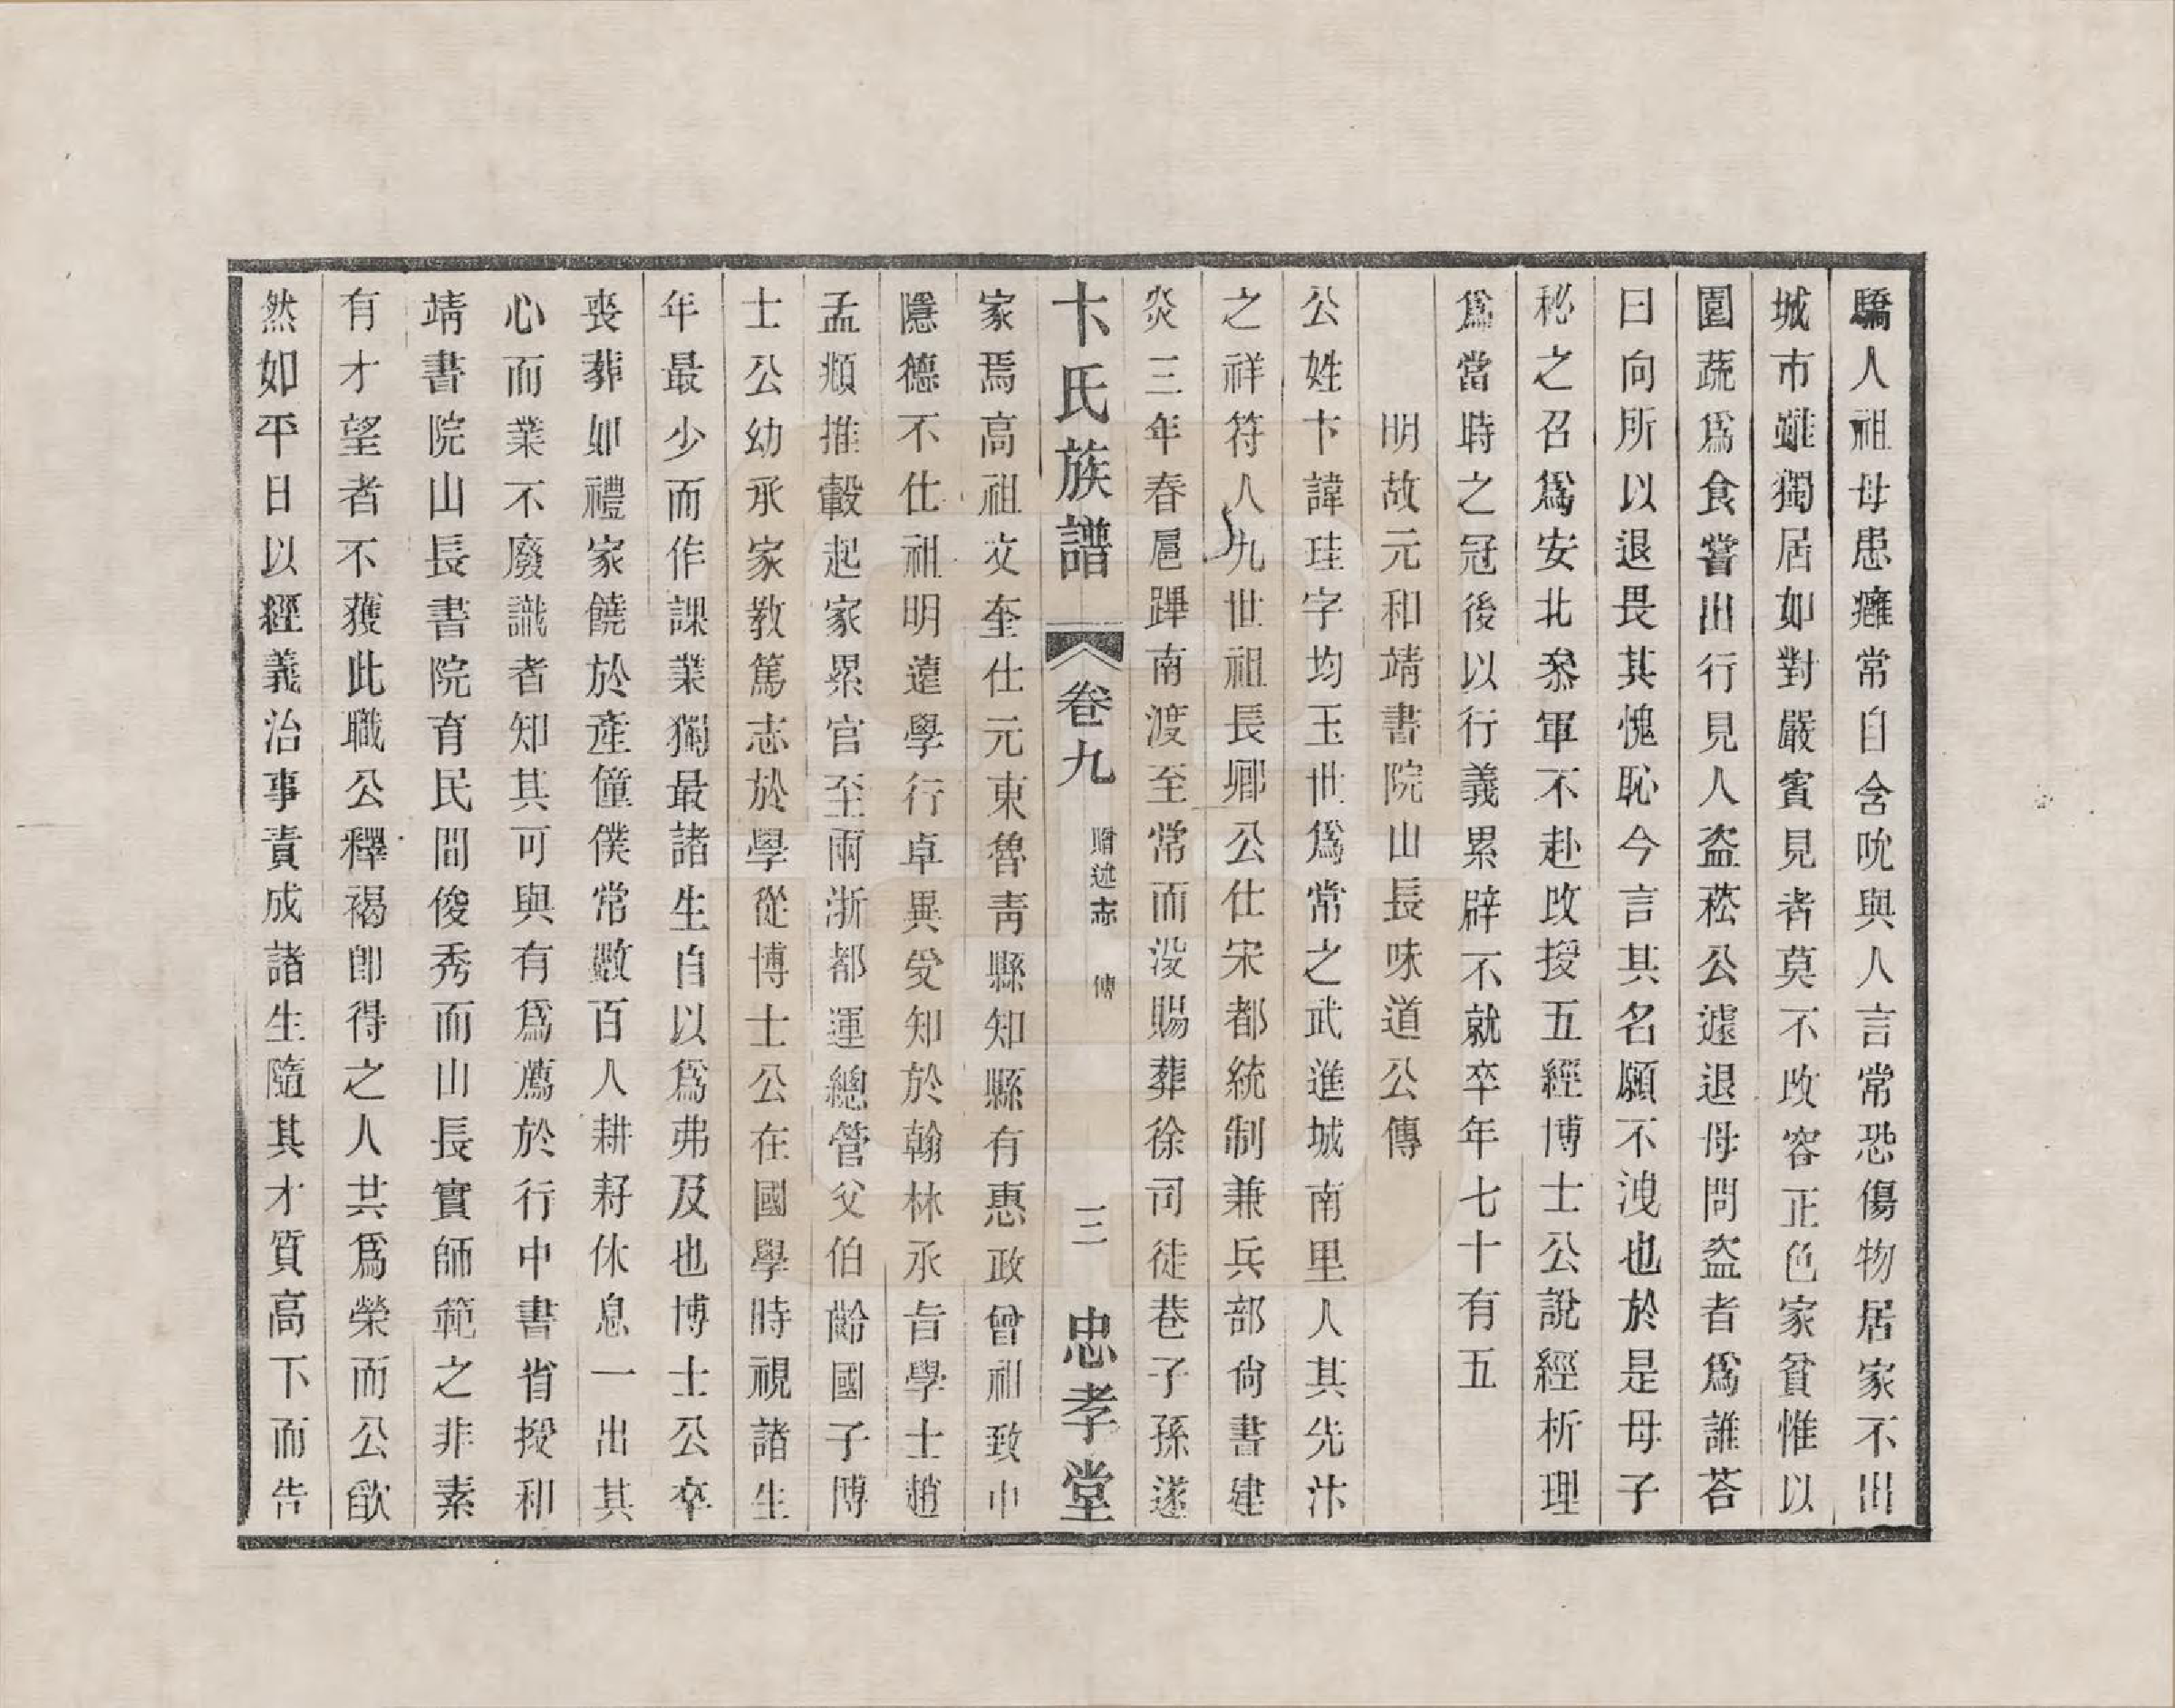 驕人祖母患癰常自含吮與人言常恐傷物居家不出
城市雖獨居如對嚴賓見者莫不改容正色家貧惟以
園蔬爲食嘗出行見人盜菘公遽退母問盜者爲誰荅
曰向所以退畏其愧恥今言其名願不洩也於是母子
秘之召爲安北叅軍不赴改授五經博士公說經析理
爲當時之冠後以行義累辟不就卒年七十有五
明故元和靖書院山長味道公傳
公姓卞諱珪字均玉世爲常之武進城南里人其先汴
之祥符人九世祖長卿公仕宋都統制兼兵部尙書建
炎三年春扈蹕南渡至常而没賜葬徐司徒巷子孫遂
卞氏族譜 卷九 贈述志 傳 三 忠孝堂
家焉高祖文奎仕元東魯靑縣知縣有惠政曾祖致中
隱德不仕祖明遠學行卓異受知於翰林承旨學士趙
孟頫推轂起家累官至兩浙都運總管父伯齡國子博
士公幼承家教篤志於學從博士公在國學時視諸生
年最少而作課業獨最諸生自以爲弗及也博士公卒
喪葬如禮家饒於產僮僕常數百人耕耔休息一出其
心而業不廢識者知其可與有爲薦於行中書省授和
靖書院山長書院育民間俊秀而山長實師範之非素
有才望者不獲此職公釋褐卽得之人共爲榮而公歆
然如平日以經義治事責成諸生隨其才質高下而告